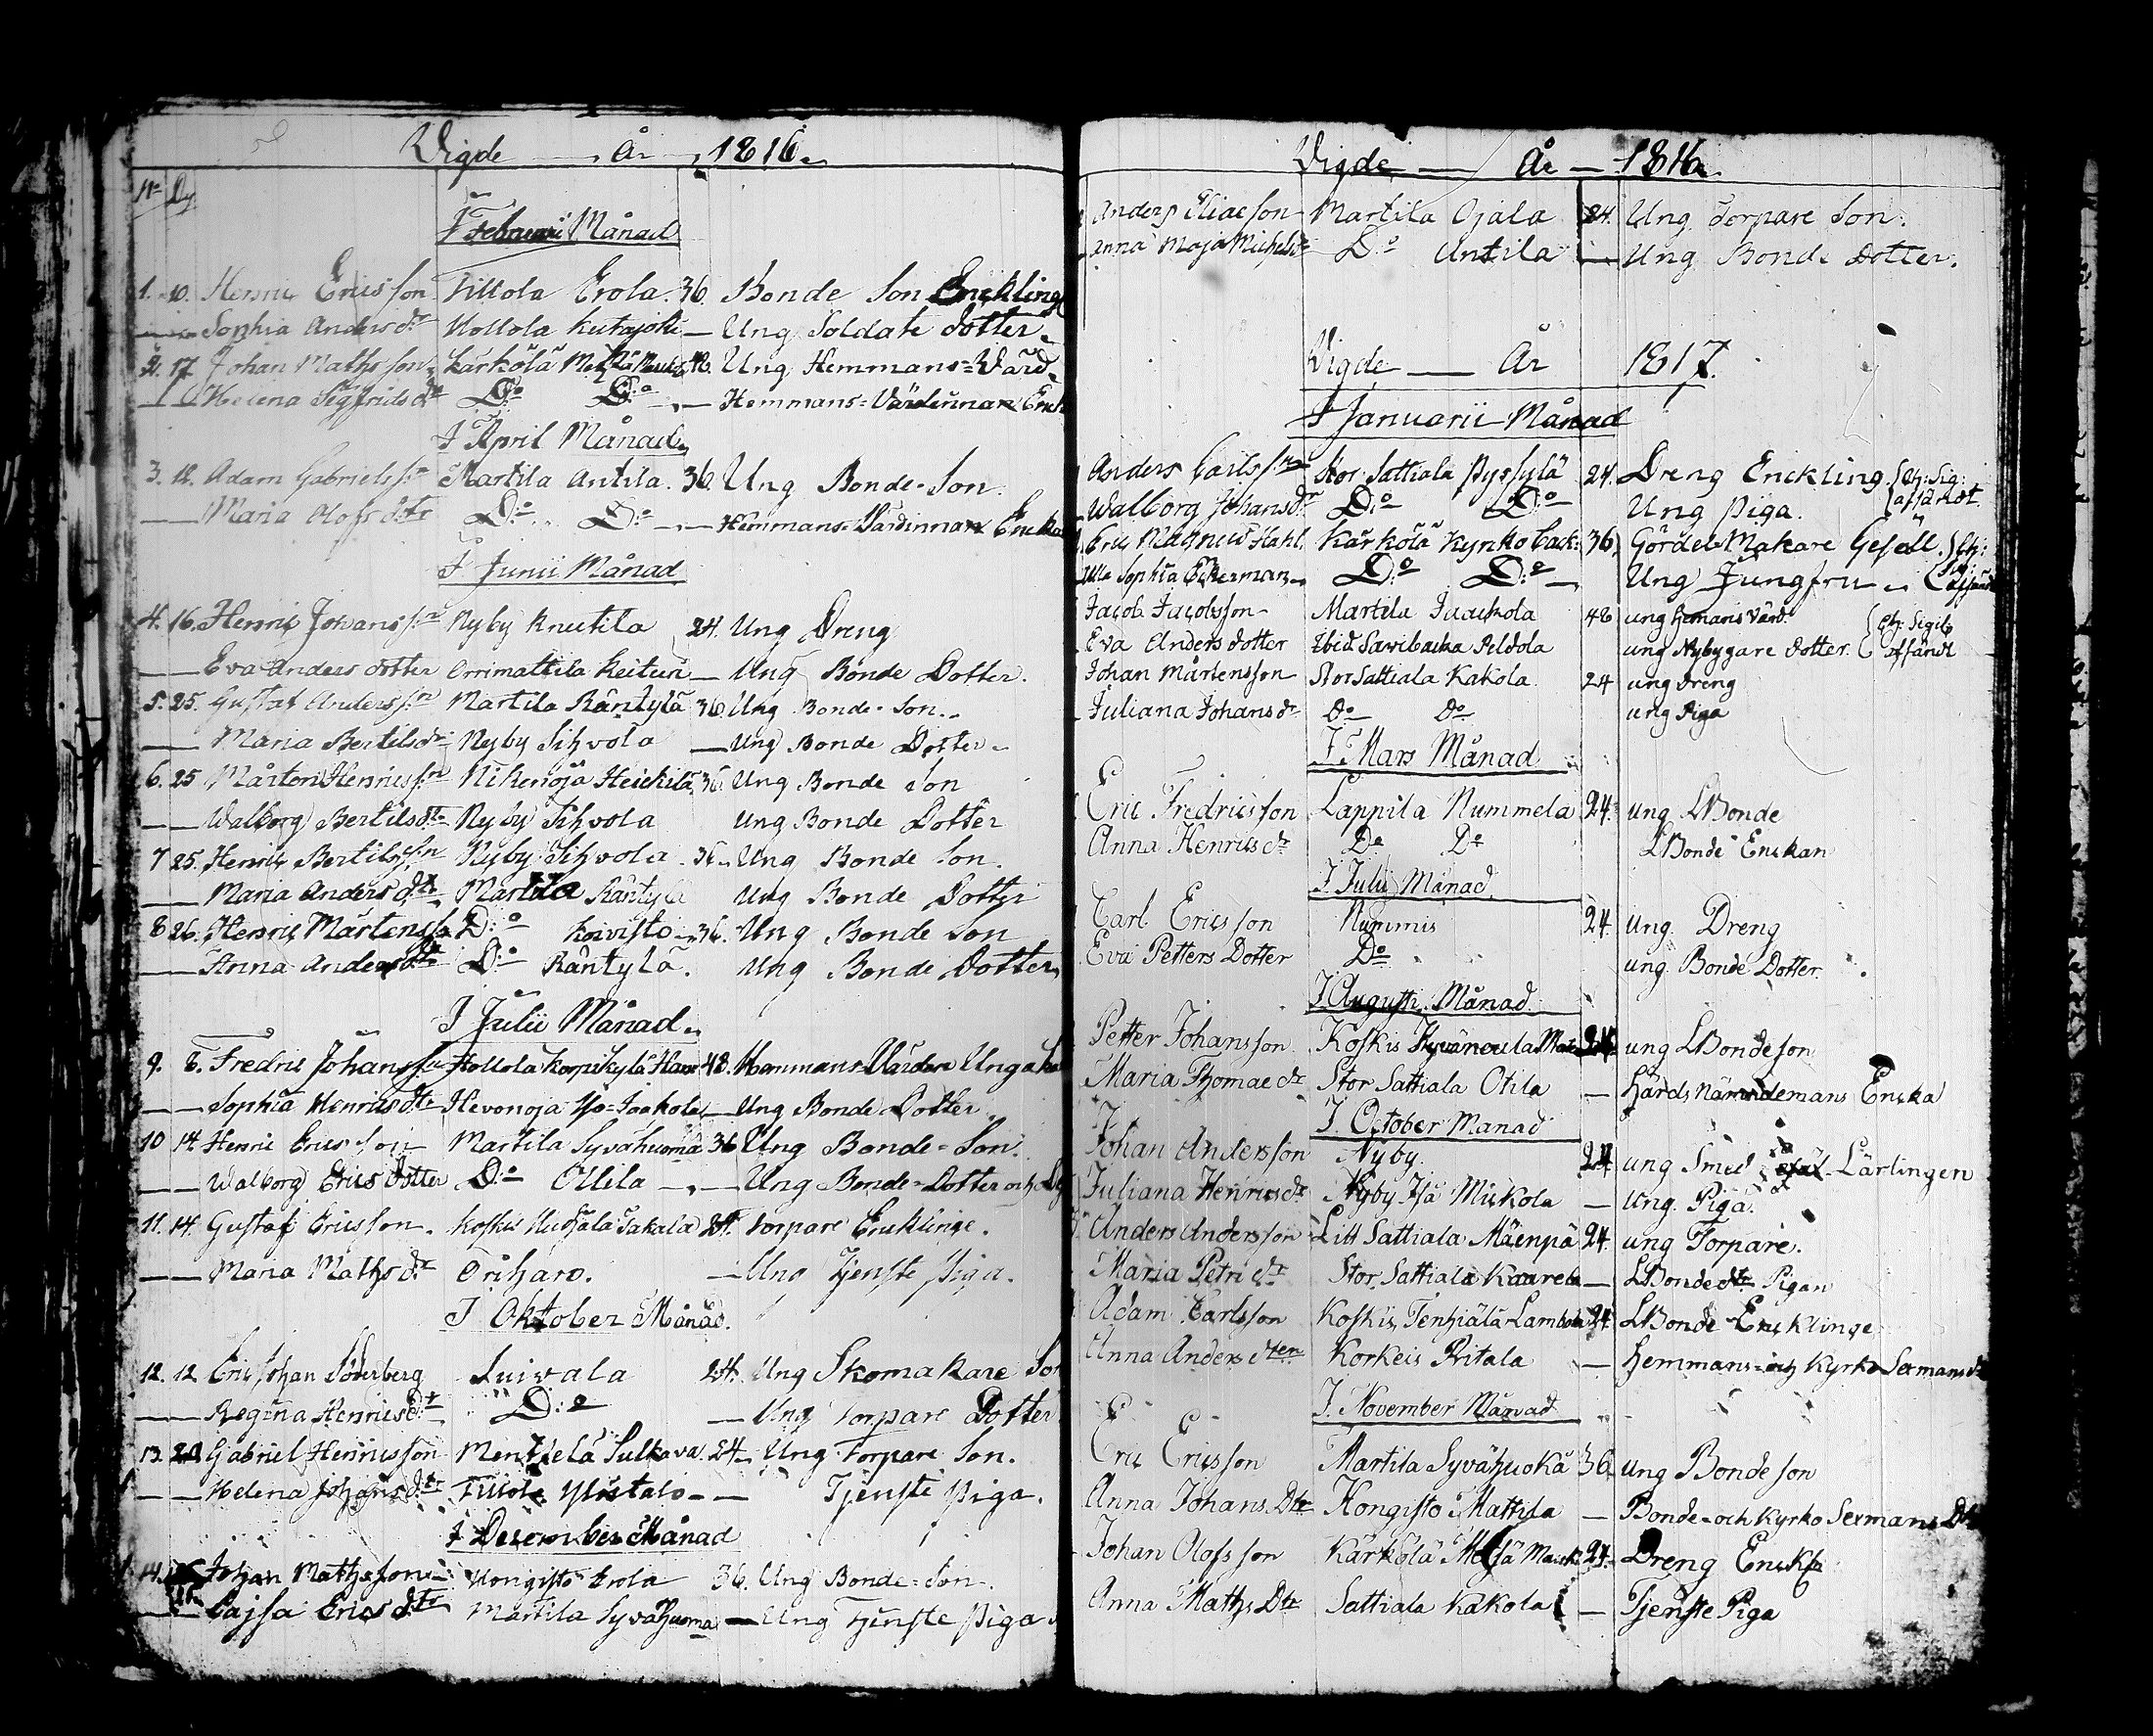 Vigde — År — 1816.
No Dg
I Februarii Månad
1. 10. Henric Ericsson Tillola Erola. 36. Bonde Son Enckling
Sophia Anders dr Hollola Kutajoki — Ung Soldate dotter.
2. 17 Johan Mathsson Kärkölä 48. Ung Hemmans=Värd.
Helena Sigfrids dr Do Do — Hemmans=Värdinnan Enck
I April Månad
3. 12. Adam Gabrielss:n Martila Antila. 36. Ung Bonde=Son.
Maria Olofs dtr Do Do — Hemmans Värdinnan Encka
I Junii Månad
4. 16. Henric Johanss:n Nyby Knutila 24. Ung Dreng
Eva Anders dotter Orrimattila Keituri — Ung Bonde Dotter.
5. 25. Gustaf Anderss:n Martila Räntylä 36. Ung Bonde=Son.
Maria Bertils dr Nyby Sihvola — Ung Bonde Dotter
6. 25 Mårten Henricss:n Nikenoja Heickilä 36. Ung Bonde Son
Walborg Bertils dtr Nyby Sihvola Ung Bonde Dotter
7 25. Henric Bertilss:n Nyby Sihvola 36. Ung Bonde Son.
Maria Anders dtr Martila Räntylä Ung Bonde Dotter
8 26. Henric Mårtenss Do Koivisto 36. Ung Bonde Son
Anna Anders dtr Do Räntylä. Ung Bonde Dotter
I Julii Månad.
9. 8. Fredric Johanss:n Hollola Korpikylä 48. Hemmans Värden Unga
Sophia Henrics dtr Hevonoja Yso=Jaakola — Ung Bonde Dotter
10 14. Henric Ericsson Martila Syvähuoma 36 Ung Bonde=Son.
Walborg Erics dotter Do Ollila — Ung Bonde=Dotter och
11. 14. Gustaf Ericsson. Koskis Huljala Takala 24. Torpare Encklinge.
Maria Maths dr Oriharo. — Ung Tjenste Piga.
I Oktober Månad.
12. 12 Eric Johan Söderberg Luivala 24. Ung Skomakare Son
Regina Henrics dr Do — Ung Torpare Dotter
13. 20 Gabriel Henricsson Menkelä Sulkava. 24. Ung Torpare Son.
Helena Johans dtr Tillola Ylöstalo — Tjenste Piga.
I December Månad
14. Johan Mathsson Hongisto Erola 36. Ung Bonde=Son.
Cajsa Erics dtr Martila Syvähuoma — Ung Tjenste Piga
Vigde — År — 1816.
Anders Eliaeson Martila Ojala 24. Ung Torpare Son.
Anna Maja Michelsdr Do Antila — Ung Bonde Dotter.
Vigde — År 1817.
I Januarii Månad
Anders Carlss:n Stor Sattiala Pyssylä 24. Dreng Enckling. Ch: Sig: afsändt.
Walborg Johans dr Do Do Ung Piga.
Eric Magnus Hahl. Kärkölä Kynko Back: 36 Gördel Makare Gesäll. Ch: Sig: afsändt
Ulla Sophia Åkerman Do Do Ung Jungfru
Jacob Jacobsson Martila Jaackola 48 ung Hemans Värd. Ch: Sigil: afsändt
Eva Anders dotter Ibid Savibacka Peldola ung Nybygare dotter.
Johan Mårtensson Stor Sattiala Kakola 24 ung dreng
Juliana Johans dr Do Do ung Piga
I Mars Månad
Eric Fredricsson Lappila Nummela 24. ung LBonde
Anna Henrics dr Do Do LBonde Enckan
I Julii Månad
Carl Ericsson Nummis 24. ung Dreng
Eva Petters Dotter Do ung Bonde Dotter.
I Augusti Månad
Petter Johansson Koskis 24. ung LBondeson
Maria Thomae dr Stor Sattiala Otila — Härds Nämndemans Encka
I October Månad
Johan Andersson Nyby. 24 ung Smed Lärlingen
Juliana Henrics dr Nyby Isä Mickola — Ung. Piga.
Anders Andersson Litt Sattiala Mäenpä 24. ung Torpare.
Maria Petri dr Stor Sattiala Kaarela — LBonde dtr Pigan
Adam Carlsson Koskis, Tenhiälä Lambola 24. LBonde Encklinge
Anna Anders dtern Korkeis Pritala — Hemmans= och Kyrko Sexmans dr
I November Månad
Eric Ericsson Martila Syvähuoka 36 ung Bonde son
Anna Johans Dtr Hongisto Mattila — Bonde= och Kyrko Sexmans Dtr
Johan Olofsson Kärkölä 24. Dreng Enckl
Anna Maths Dtr Sattiala Kakola — Tjenste Piga